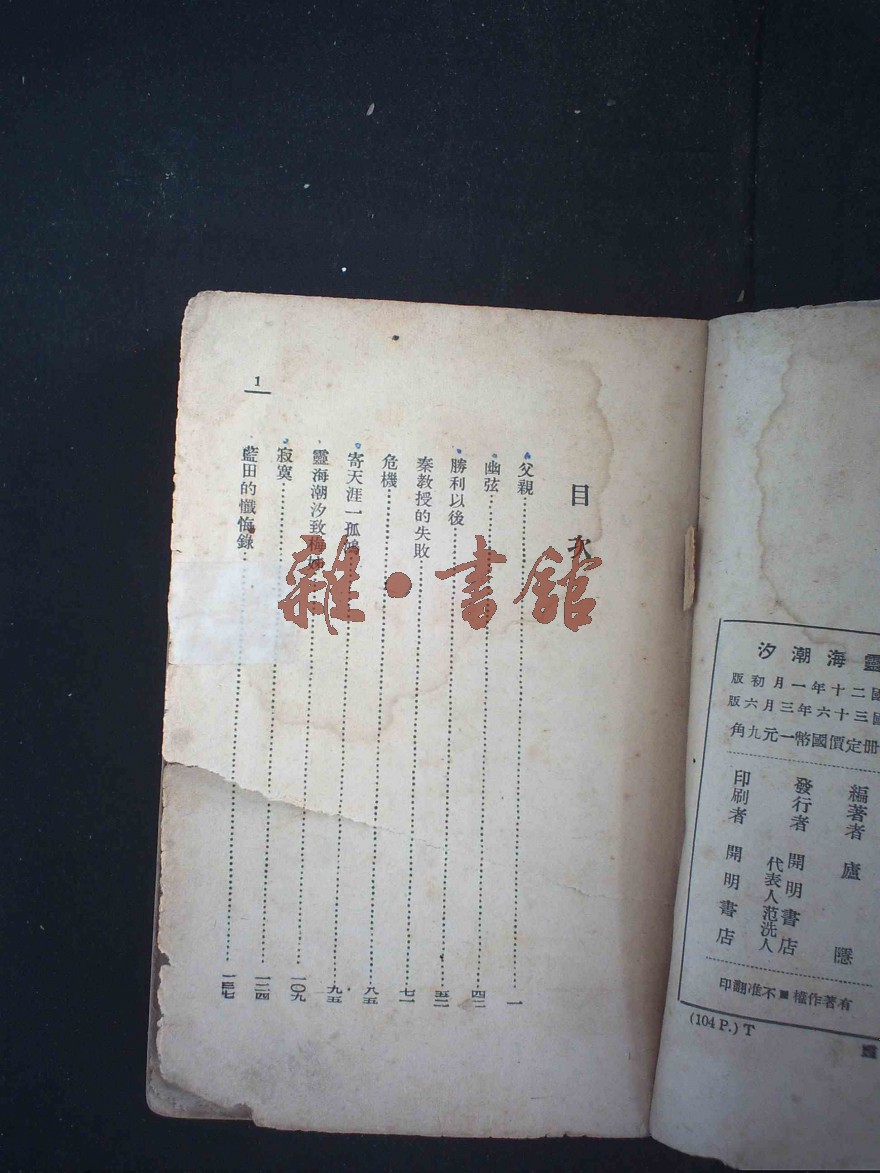 靈海潮汐
國二十年一月初版
國三十六年三月六版
冊定價國幣一元九角
編著者 廬隱
發行者 開明書店
代表人范洗人
印刷者 開明書店
有著作權■不准翻印
(104 P.) T
目次
父親……一
幽弦……四二
勝利以後……五二
秦教授的失敗……七一
危機……八五
寄天涯一孤鴻……九五
靈海潮汐致梅姊……一〇九
寂寞……一二四
藍田的懺悔錄……一三七
1
雜·書館